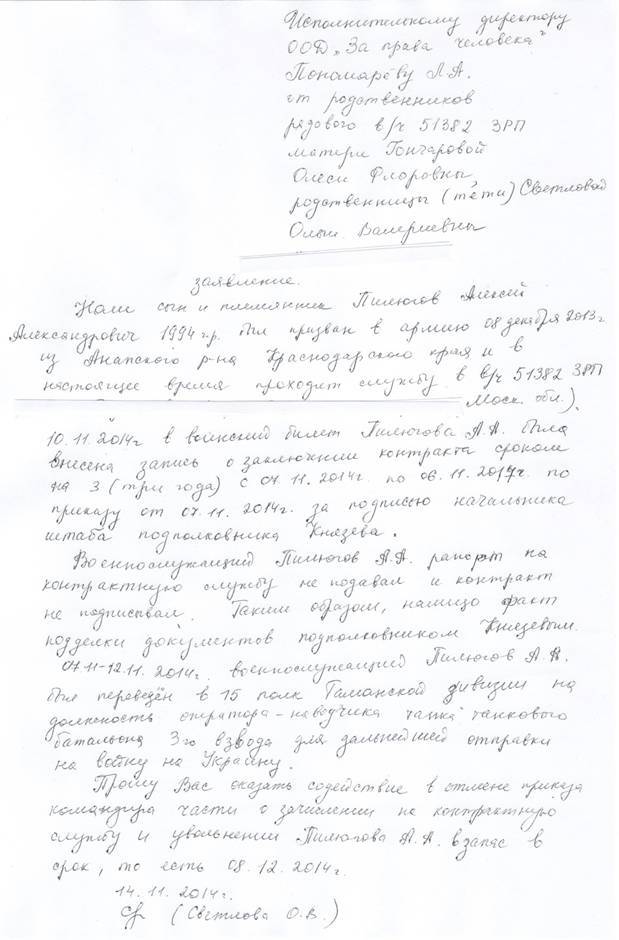 Исполнительному директору
ООД "За права человека"
Пономарёву Л.А.
от родственников
рядового в/ч 51382 ЗРП
матери Гончаровой
Олеси Флоровны,
родственницы (тёти) Светловой
Ольги Валериевны
заявление.
Наш сын и племянник Пилюгов Алексей
Александрович 1994 г.р. был призван в армию 08 декабря 2013г
из Анапского р-на Краснодарского края и в
настоящее время проходит службу в в/ч 51382 ЗРП
Моск. обл.).
10.11.2014г в военский билет Пилюгова А.А. была
внесена запись о заключении контракта сроком
на 3 (три года) с 07.11.2014г. по 06.11.2017г. по
приказу от 07.11.2014г. за подписью начальника
штаба подполковника Князева.
Военнослужащий Пилюгов А.А. рапорт на
контрактную службу не подавал и контракт
не подписывал. Таким образом, налицо факт
подделки документов подполковником Князевым.
07.11-12.11.2014г. военнослужащий Пилюгов А.А.
был переведён в 15 полк Таманской дивизии на
должность оператора-наводчика танка танкового
батальона 3го взвода для дальнейшей отправки
на войну на Украину.
Прошу Вас оказать содействие в отмене приказа
командира части о зачислении на контрактную
службу и увольнении Пилюгова А.А. в запас в
срок, то есть 08.12.2014г.
14.11.2014г.
(Светлова О.В.)